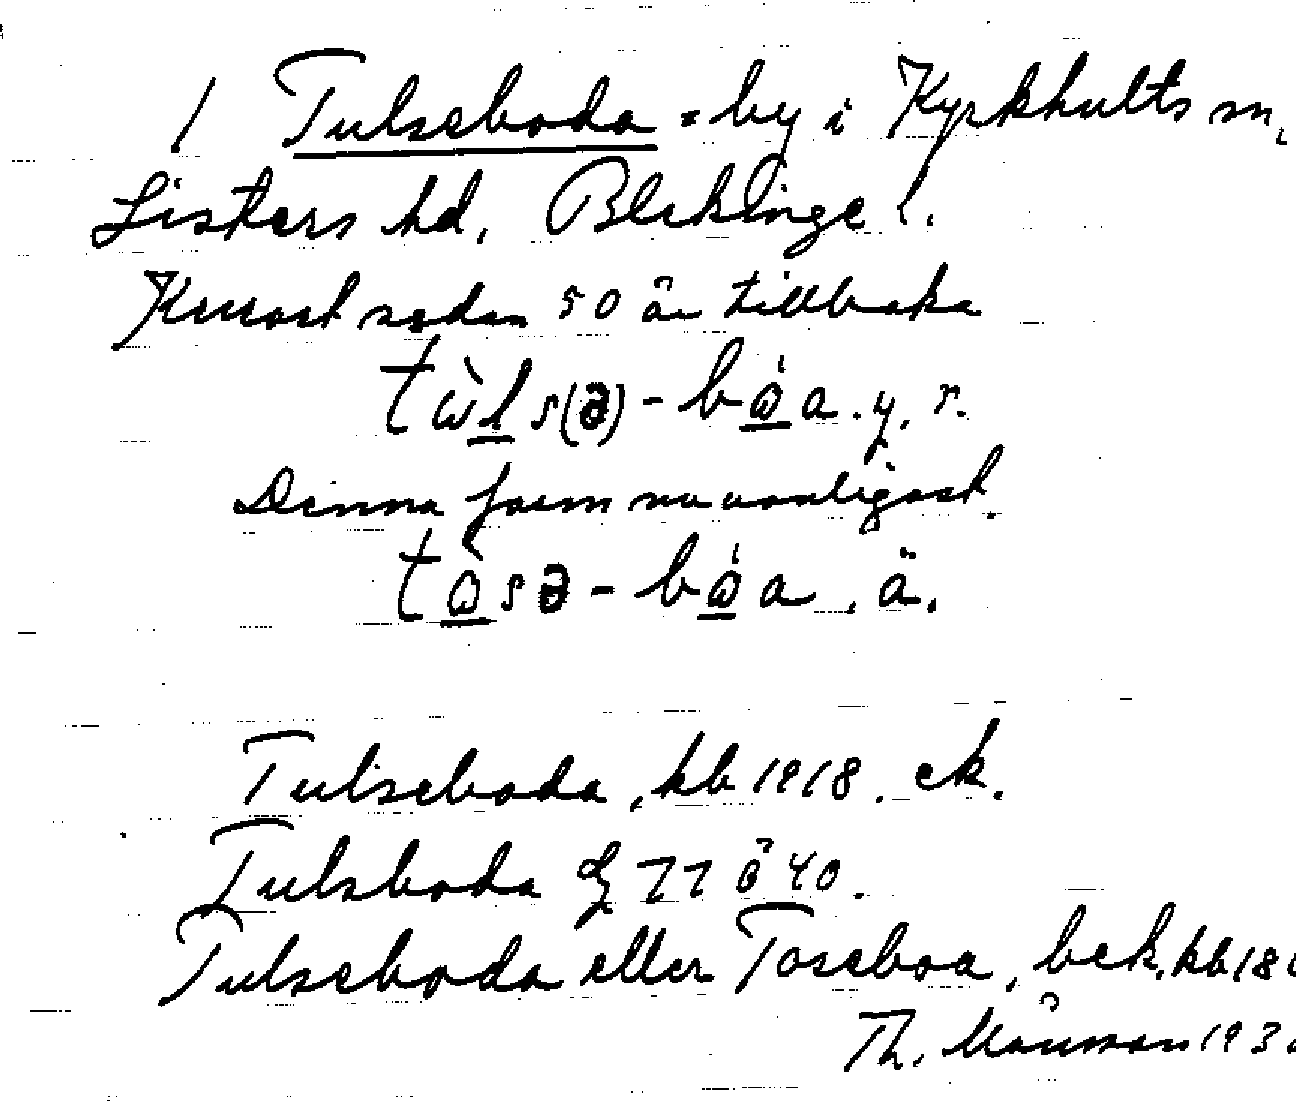 1 Tulseboda = by i Kyrkhults sn,
Listers hd, Blekinge l.
Kurort sedan 50 år tillbaka
tὼl̲s(ə)-bώ̲a. y. r.
Denna form nu vanligast.
tὼ̲sə-bώ̲a. ä.
Tulseboda, kb 1918. ek.
Tulsboda 77 ö 40.
Tulseboda eller Toseboa, bek, kb 18
Th. Månsson 193